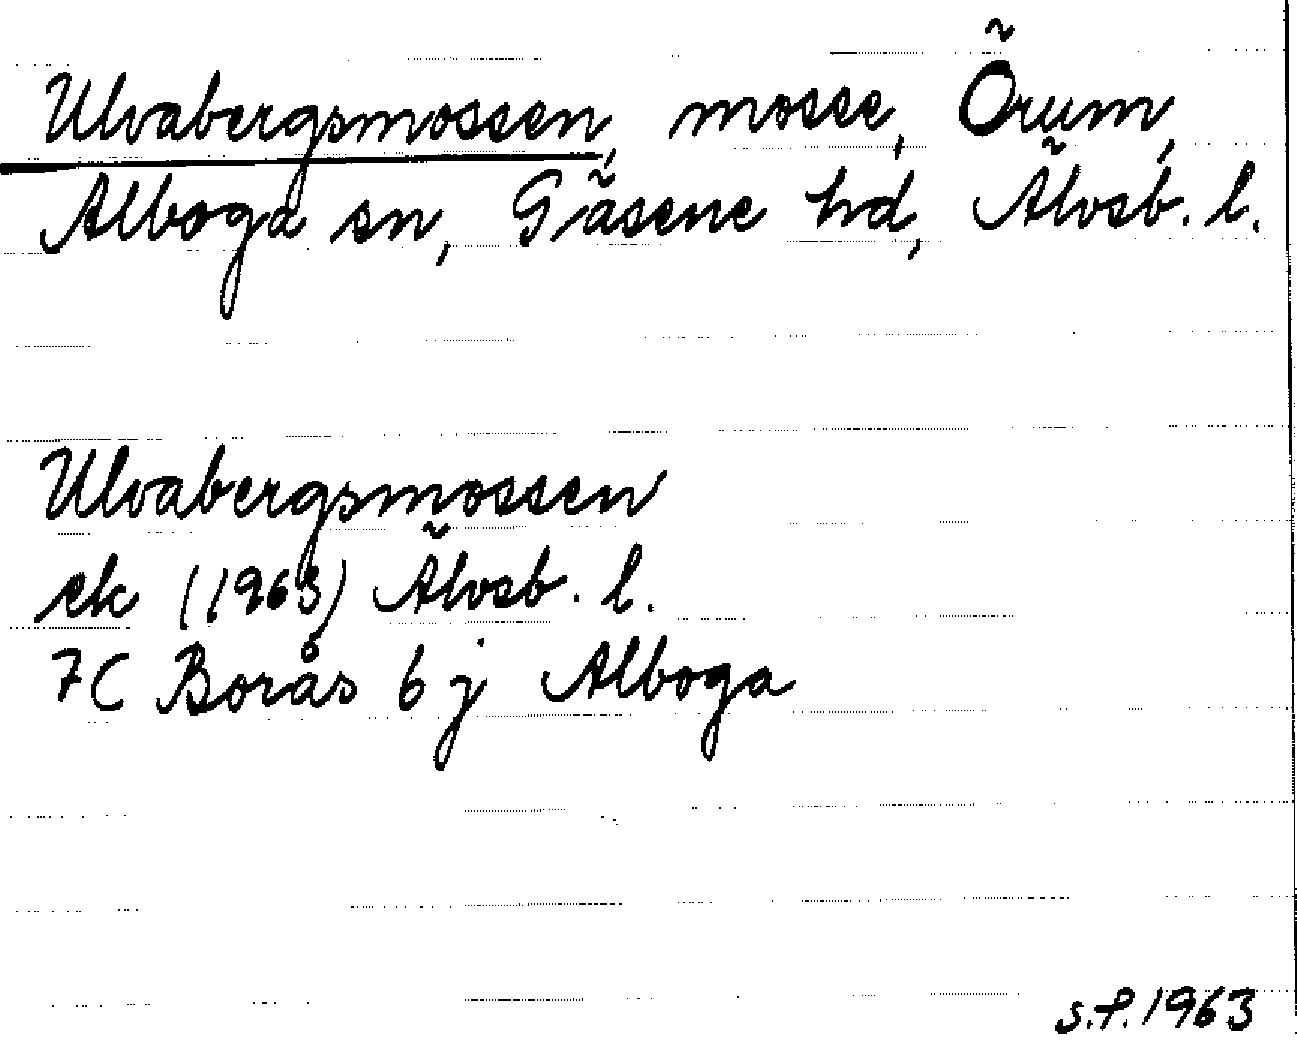 Ulvabergsmossen, mosse, Örum,
Alboga sn, Gäsene hd, Älvsb. l.
Ulvabergsmossen
ek (1963) Älvsb. l.
7C Borås 6j Alboga
s.f. 1963